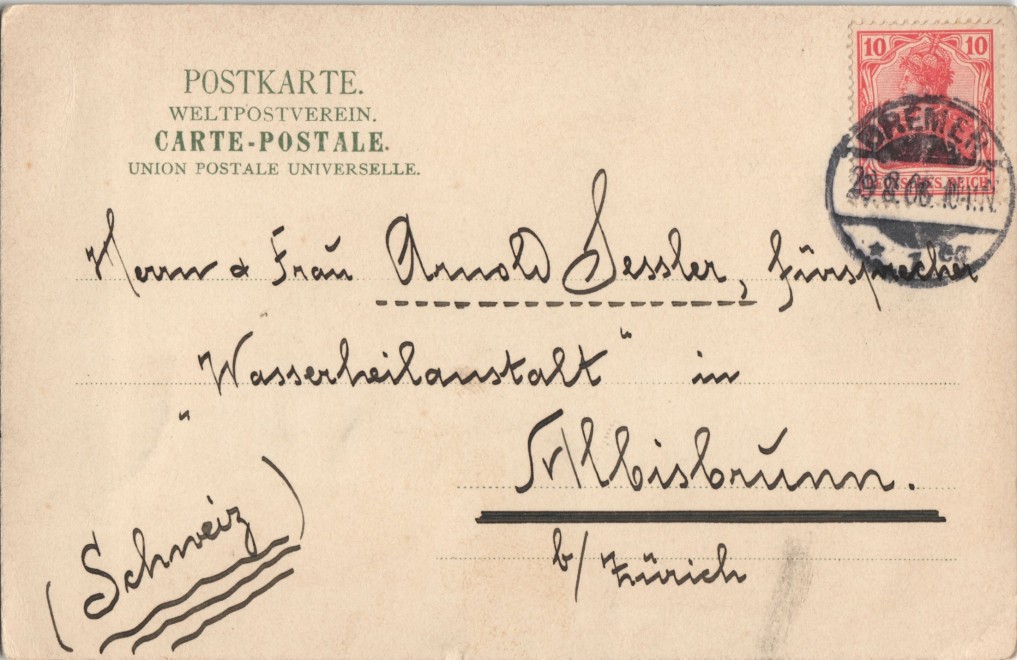 POSTKARTE.
WELTPOSTVEREIN.
CARTE-POSTALE.
UNION POSTALE UNIVERSELLE.
10 10
BREMEN
REICH
29.8.06.
Herrn & Frau Arnold Sessler, Fürsprecher
"Wasserheilanstalt" in
Albisbrunn.
b/ Zürich
(Schweiz)